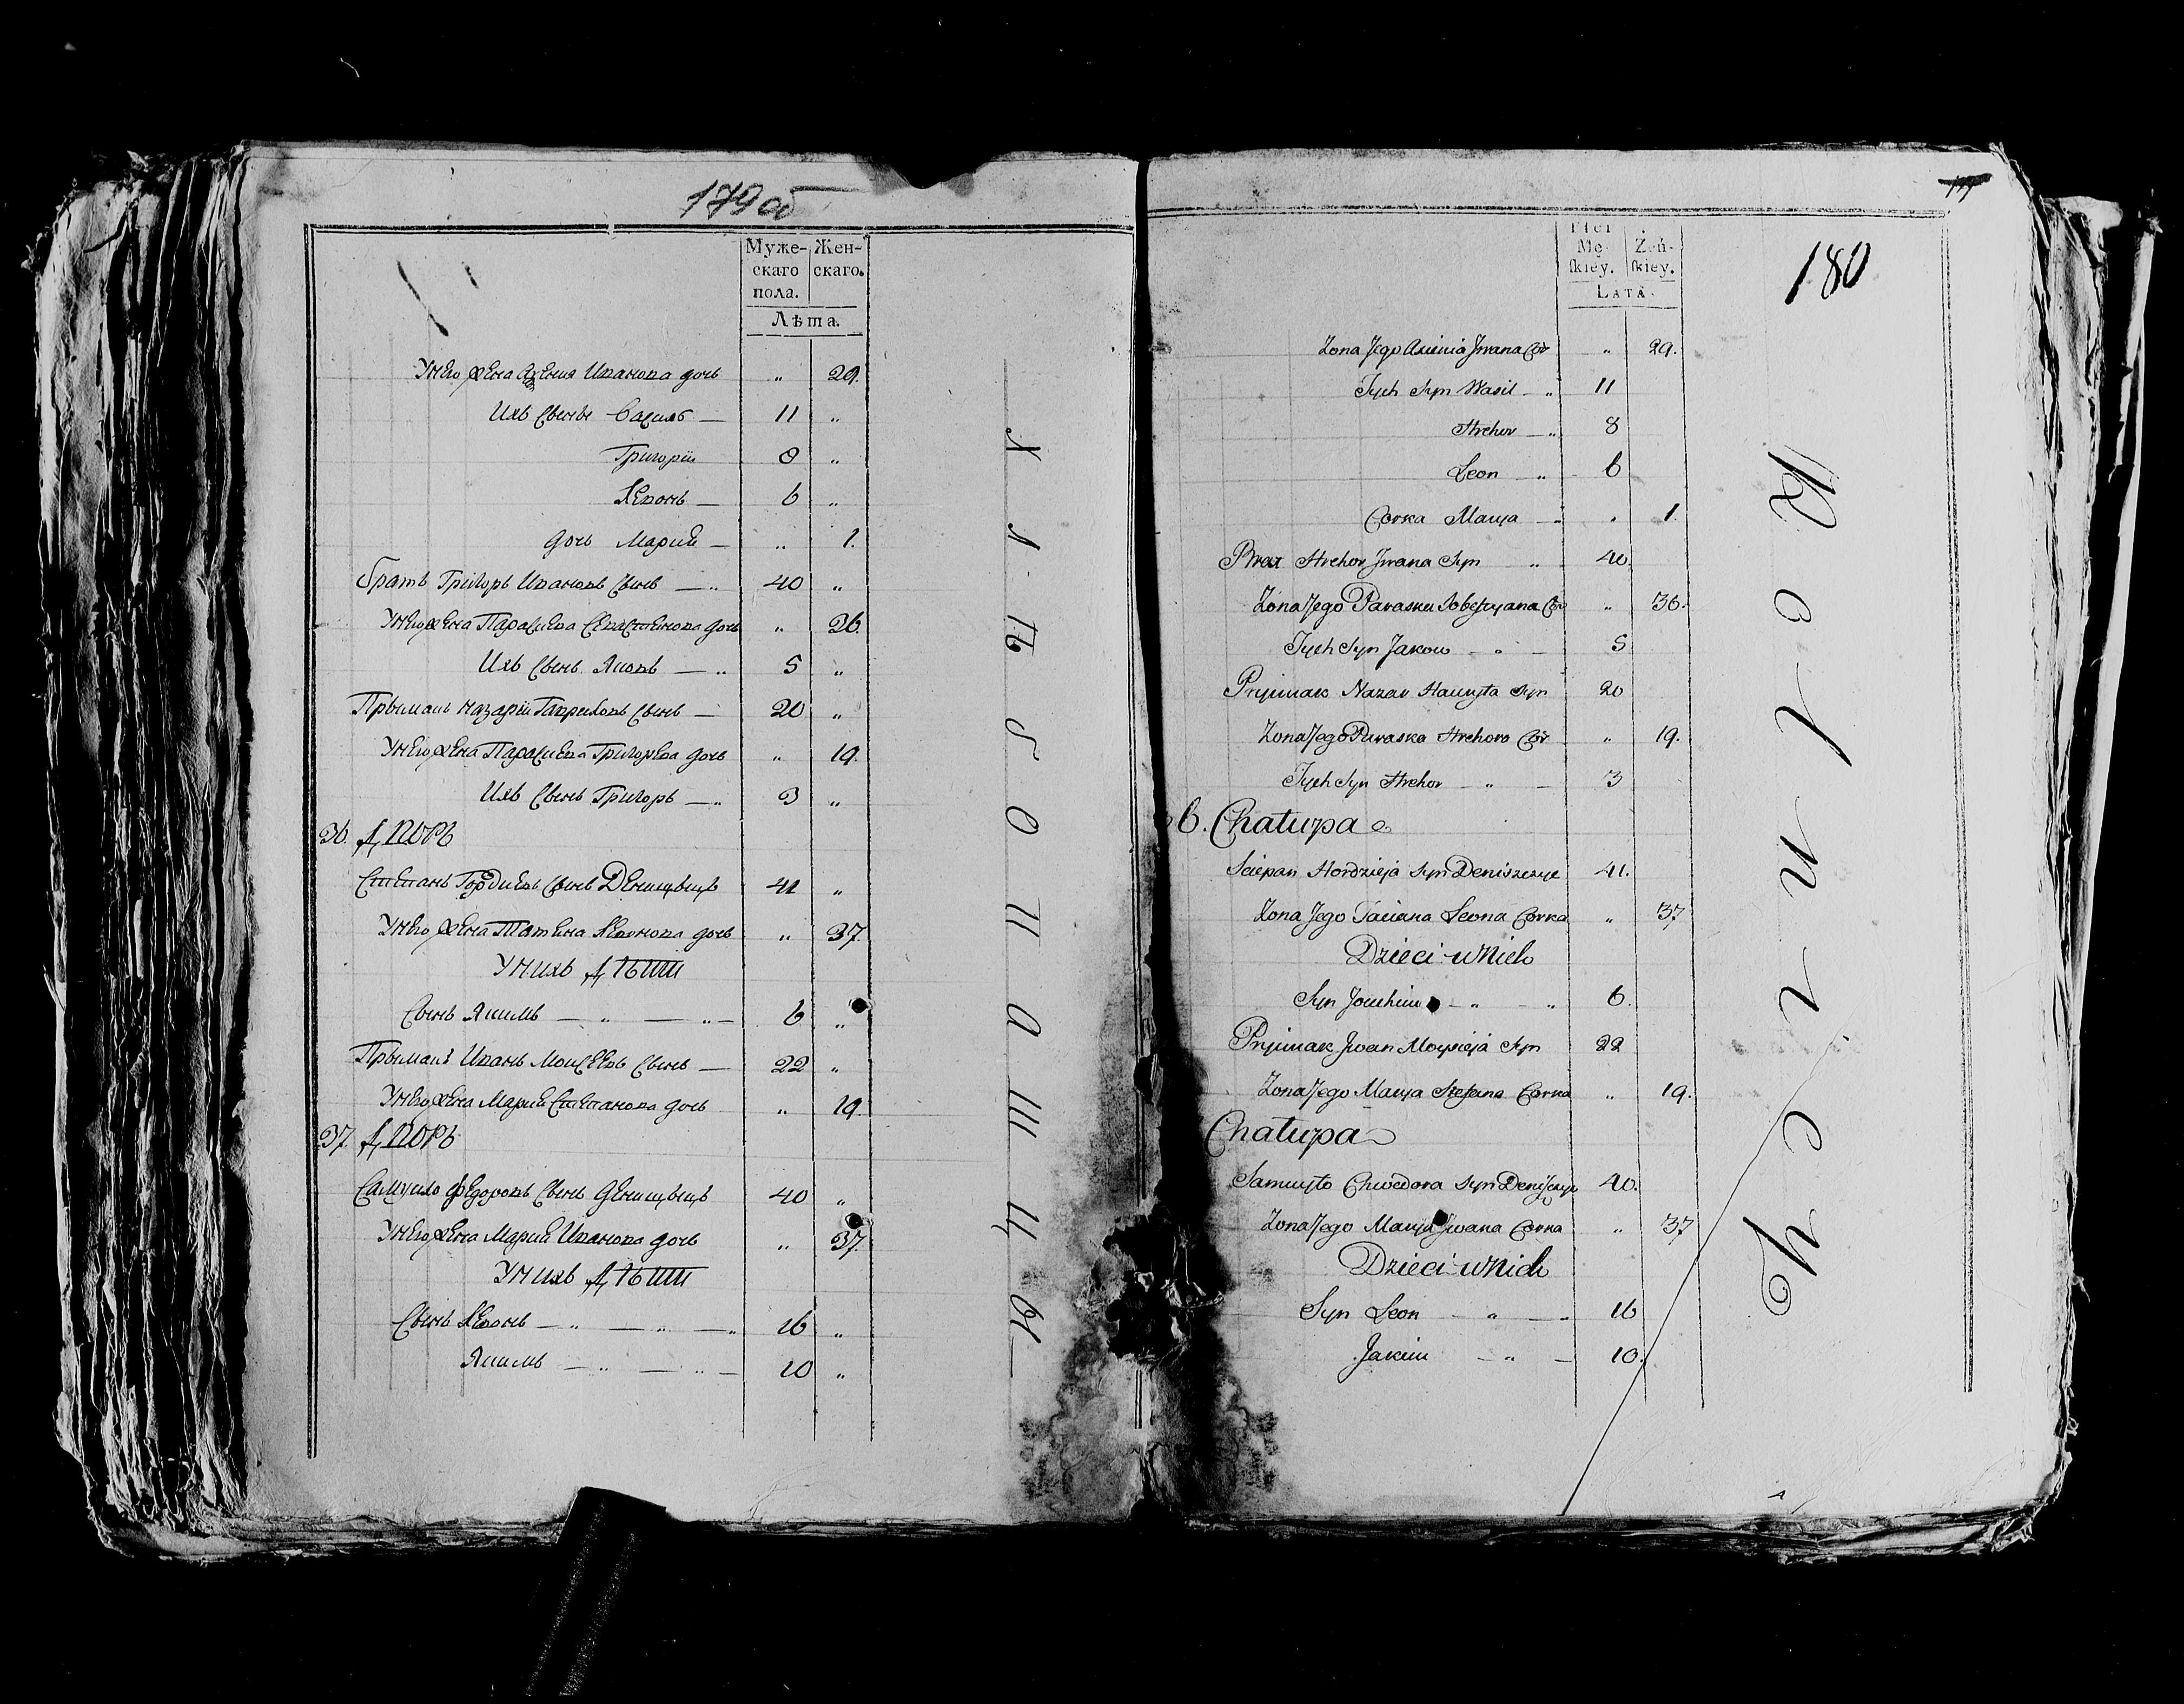 179 об
Муже-
скаго
пола.
Жен-
скаго.
Лѣта.
У него жена Аксения Иванова дочь " 29.
Ихъ сынъ Василъ — 11 "
Григорїи 8 "
Левонъ — 6 "
дочь Мария — " 1.
братъ Григоръ Ивановъ сынъ — " 40 "
У него жена Парасиева Севастиенова дочь " 26.
Ихъ сынъ Яковъ — " 5 "
Прымакъ Назарїи Гаврилов сынъ — 20 "
У него жена Парасиева Григорева дочь " 19.
Ихъ сынъ Григоръ — " 3 "
36. ДВОРЪ
Степанъ Гордиевъ сынъ Денищыцъ 41 "
У него жена Татяна Левонова дочь " 37.
У нихъ ДѢТИ
Сынъ Якимъ — " — " — 6 "
Прымакъ Иванъ Моисеевъ сынъ — 22 "
У него жена Мария Степанова дочь " 19.
37. ДВОРЪ
Самуило Федоровъ сынъ Денищыцъ 40 "
У него жена Мария Иванова дочь " 37.
У нихъ ДѢТИ
Сынъ Левонъ — " — " — " 16 "
Якимъ — " — " — 10 "
ХЛѢБОПАШЦЫ
177
180
Mę-
skiey.
Żeń-
skiey.
LATA.
Zona Jego Axienia Jwana Cór " 29.
Jych Syn Wasil — " 11
Hrehor — " 8
Leon — " 6
Corka Marya — " " 1.
Brat Hrehor Jwana Syn " 40.
Zona Jego Paraska Sobestyana Cór " 36.
Jych Syn Jakow — " — 5
Pryimak Nazar Hawryła Syn 20
Zona Jego Paraska Hrehora Cór " 19.
Jych Syn Hrehor — " — 3
6. Chałupa
Sciepan Hordzieja Syn Deniszczyc 41.
Zona Jego Taciana Leona Corka " 37
Dzieci u Nich
Syn Joachim — " — " 6.
Pryimak Jwan Moysieja Syn 22
Zona Jego Marya Stefana Corka " 19.
Chałupa
Samuyło Chwedora Syn Deniszczyc 40.
Zona Jego Marya Jwana Corka " 37
Dzieci u Nich
Syn Leon — " — " 16
Jakim — " — 10.
Rolnicy